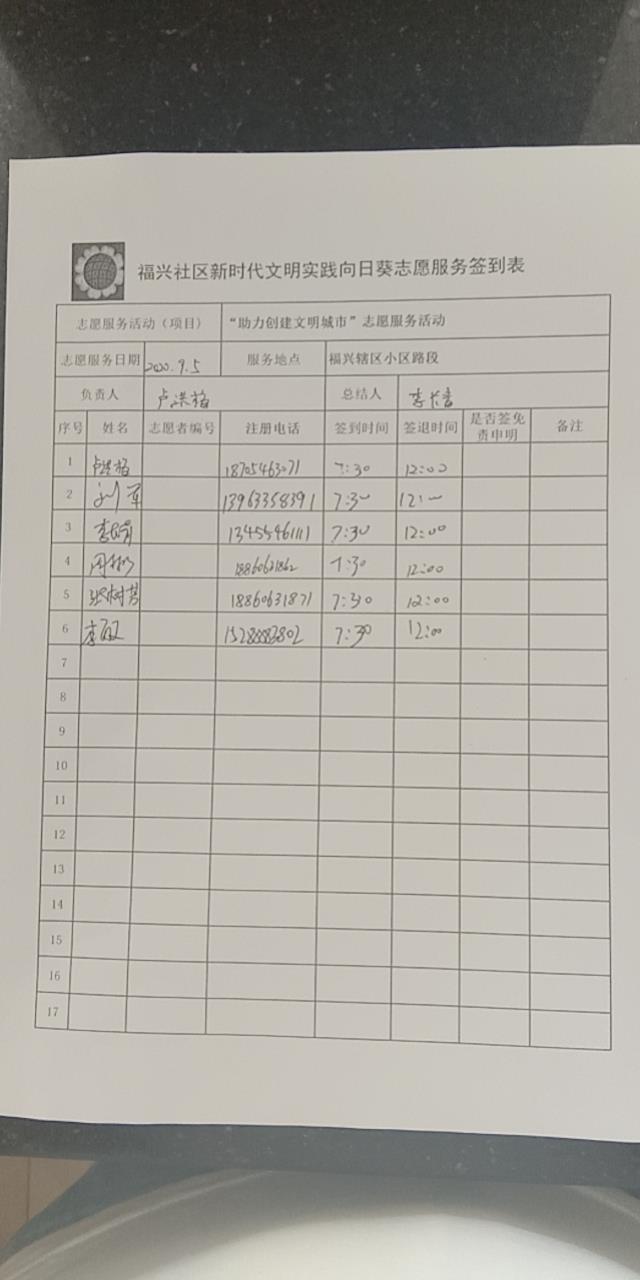 福兴社区新时代文明实践向日葵志愿服务签到表
志愿服务活动（项目） “助力创建文明城市”志愿服务活动
志愿服务日期 2020.9.5 服务地点 福兴辖区小区路段
负责人 总结人
序号 姓名 志愿者编号 注册电话 签到时间 签退时间 是否签免责申明 备注
1 18705463071 7:30 12:00
2 刘军 13963358391 7:30 12:00
3 13455461111 7:30 12:00
4 18860631862 7:30 12:00
5 张树芳 18860631871 7:30 12:00
6 7:30 12:00
7
8
9
10
11
12
13
14
15
16
17